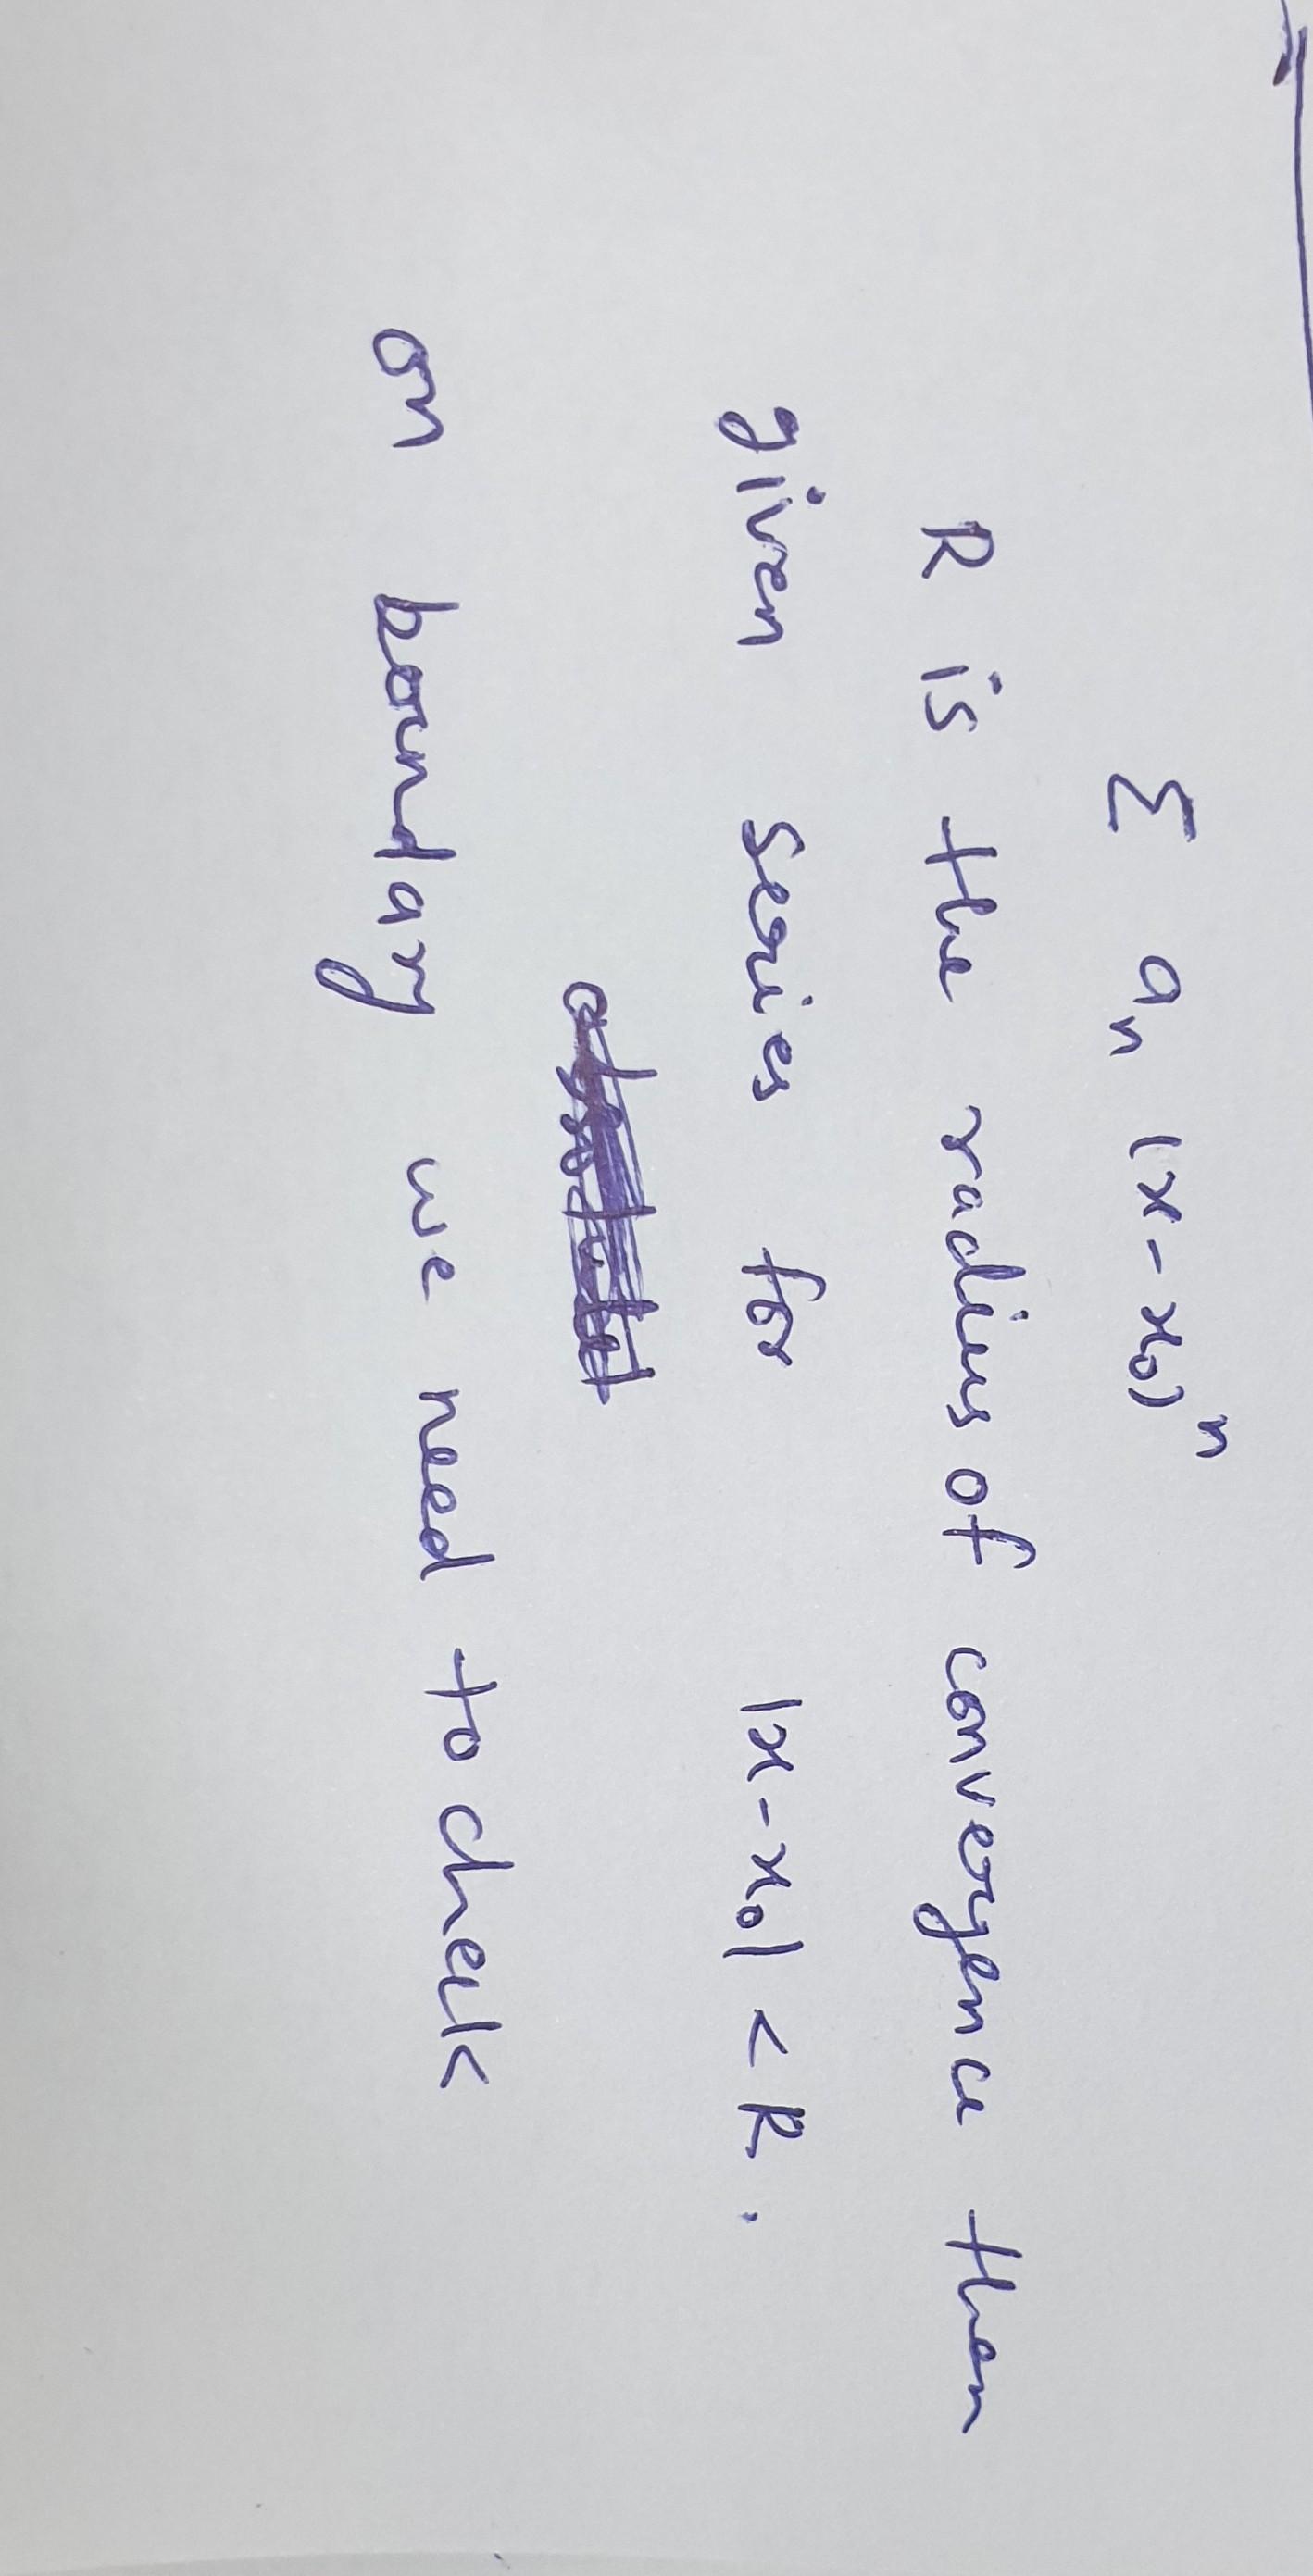 Σ aₙ (x-x₀)ⁿ
R is the radius of convergence then
given series for |x-x₀| < R.
on boundary we need to check